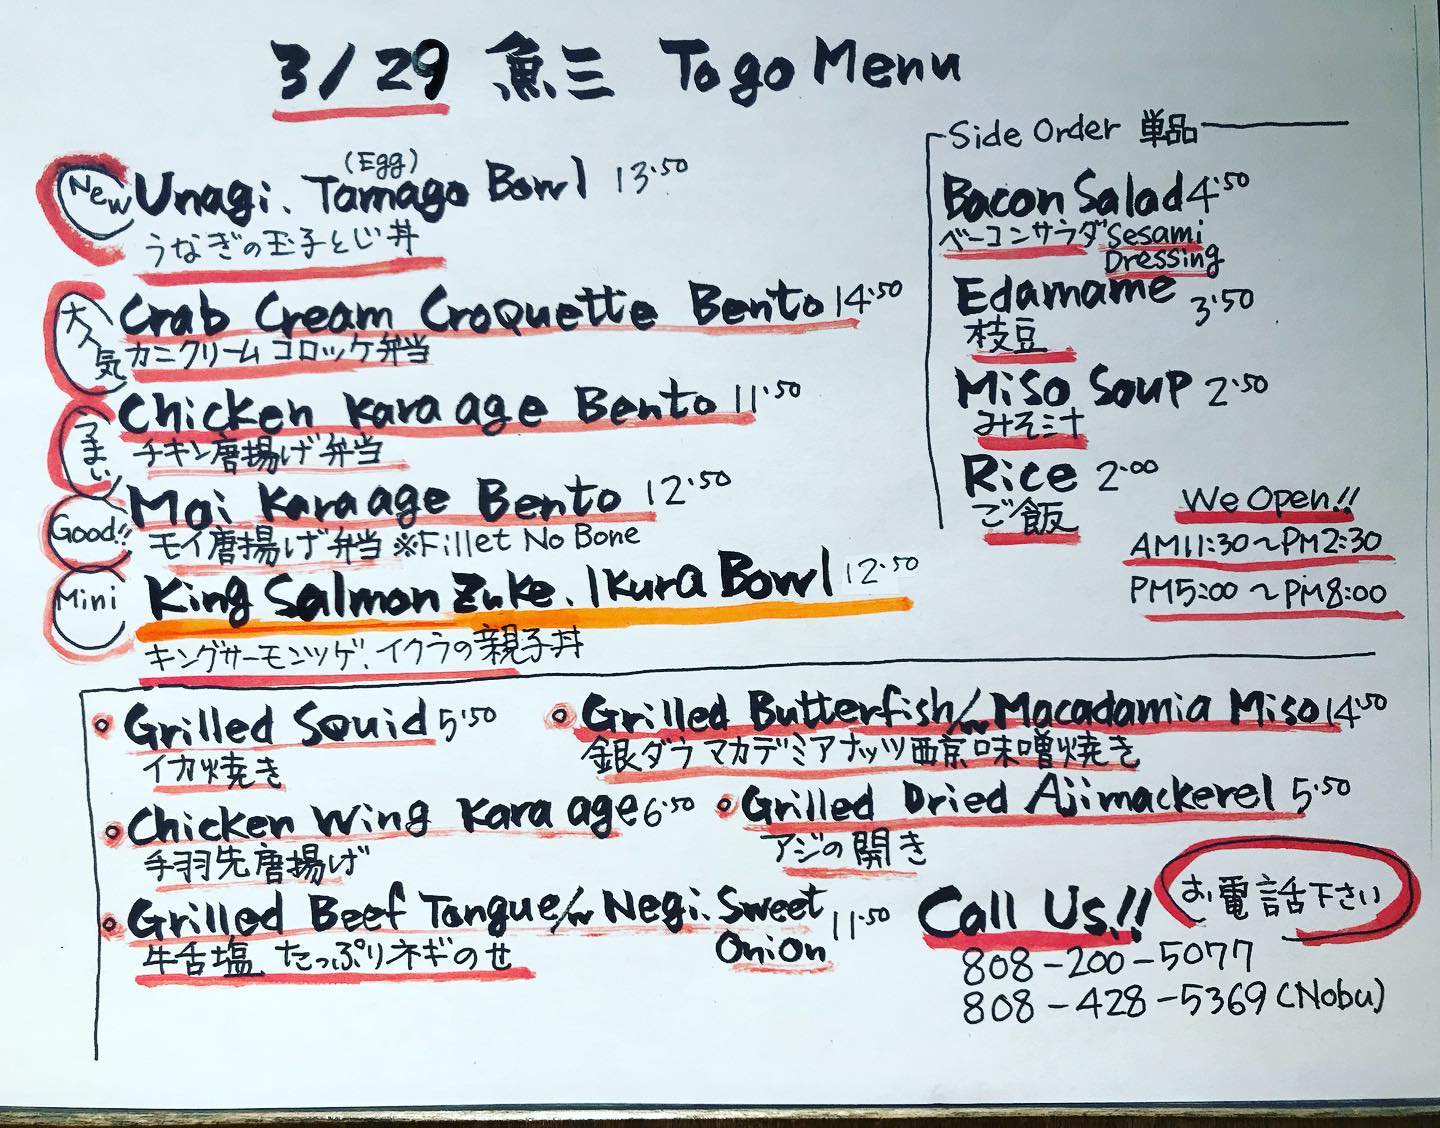 3/29 魚三 To go Menu
New Unagi. Tamago (Egg) Bowl 13.50
うなぎの玉子とじ丼
大人気 Crab Cream Croquette Bento 14.50
カニクリームコロッケ弁当
うまい Chicken Kara age Bento 11.50
チキン唐揚げ弁当
Good!! Moi Kara age Bento 12.50
モイ唐揚げ弁当 ※Fillet No Bone
Mini King Salmon Zuke. Ikura Bowl 12.50
キングサーモンヅケ、イクラの親子丼
Side Order 単品
Bacon Salad 4.50
ベーコンサラダ Sesami
Dressing
Edamame 3.50
枝豆
Miso Soup 2.50
みそ汁
Rice 2.00
ご飯
We Open!!
AM11:30～PM2:30
PM5:00～PM8:00
Grilled Squid 5.50
イカ焼き
Grilled Butterfish/w Macadamia Miso 14.50
銀ダラマカデミアナッツ西京味噌焼き
Chicken Wing Kara age 6.50
手羽先唐揚げ
Grilled Dried Ajimackerel 5.50
アジの開き
Grilled Beef Tongue/w Negi. Sweet
Onion 11.50
牛舌塩 たっぷりネギのせ
Call Us!! お電話下さい
808-200-5077
808-428-5369 (Nobu)